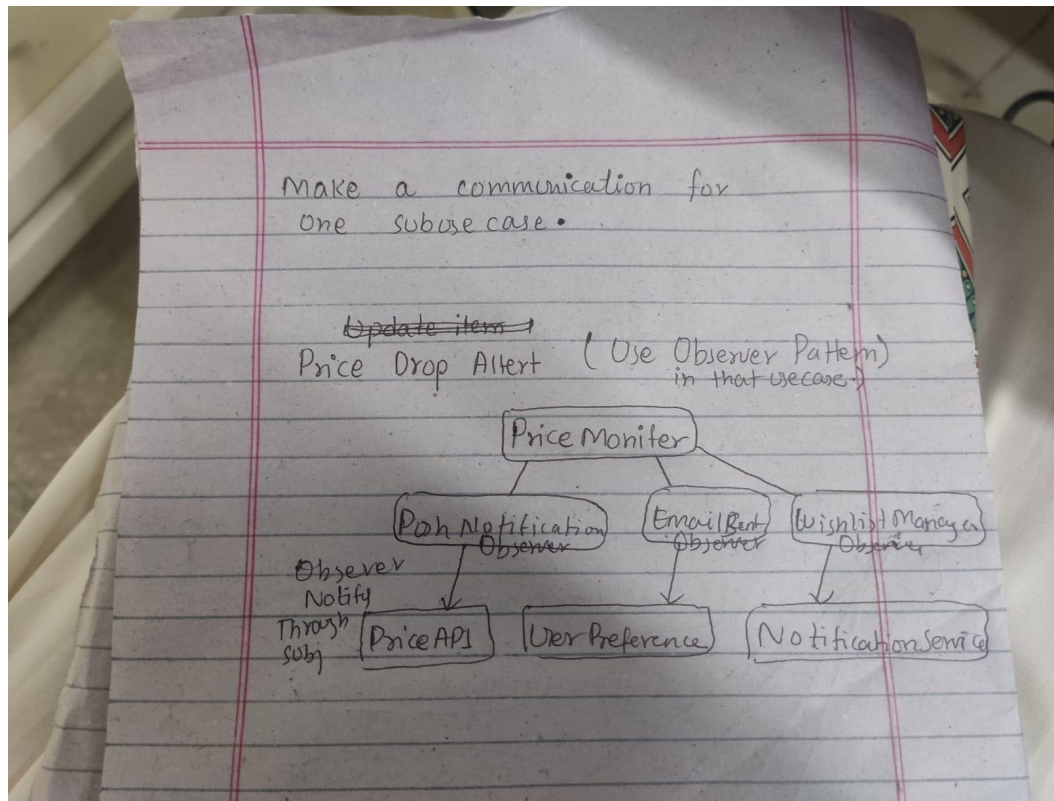 Make a communication for
one subuse case.
Update item
Price Drop Altert (Use Observer Pattern)
in that usecase.)
Price Moniter
Push Notification Email Wishlist Manager
Observer Observer Observer
Observer
Notify
Through
Subj
Price API User Preference Notification Service